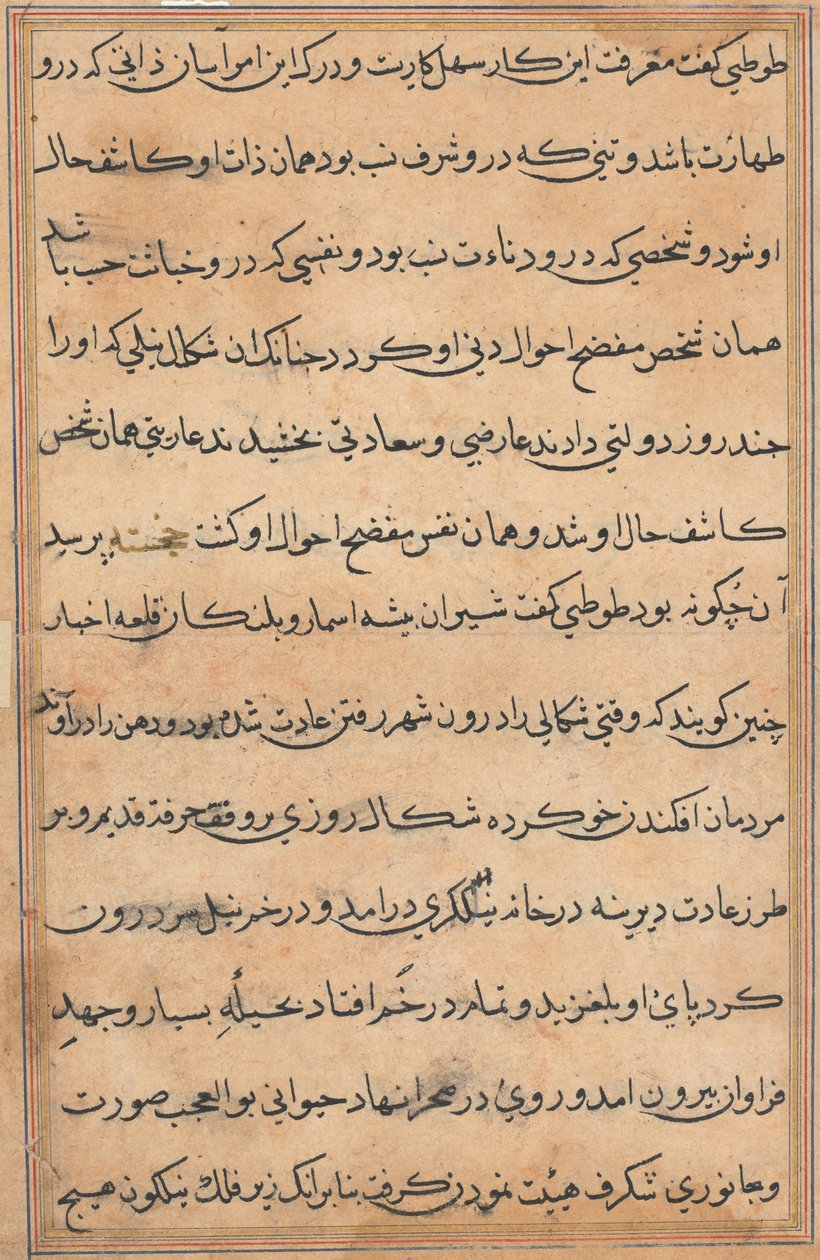 طوطي كفت معرفت اين كار سهل كاريت و درك اين امر آسان ذاتي كه درو
طهارت باشد و تني كه درو شرف نسب بود همان ذات او كاشف حال
او شود و شخصي كه درو دناءت نسب بود و نفسي كه درو خباثت حسب باشد
همان شخص مفضح احوال دني او كردد چنانك ان شكال نيلي كه او را
چند روز دولتي دادند عارضي و سعادتي بخشيدند عاريتي همان شخص
كاشف حال او شد و همان نفس مفضح احوال او كشت خجسته پرسيد
آن چُكونه بود طوطي كفت شيران بيشه اسمار و پلنكان قلعه اخبار
چنين كويند كه وقتي شكالي را درون شهر رفتن عادت شده بود و دهن را در آوند
مردمان افكندن خو كرده شكال روزي بر وفق حرفة قديم و بر
طرز عادت ديرينه در خانه نيلكري درامد و در خم نيل سر درون
كرد پاي او بلغزيد و تمام در خُم افتاد بحيلهِ بسيار و جهدِ
فراوان بيرون امد و روي در صحرا نهاد حيواني بوالعجب صورت
و جانوري شكرف هيئت نمودن كرفت بنابرانك زير فلك نيلكون هيچ